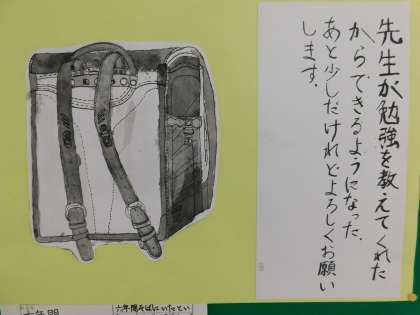 先生が勉強を教えてくれた
からできるようになった.
あと少しだけれどよろしくお願い
します.
六年間
六年間そばにいたとい